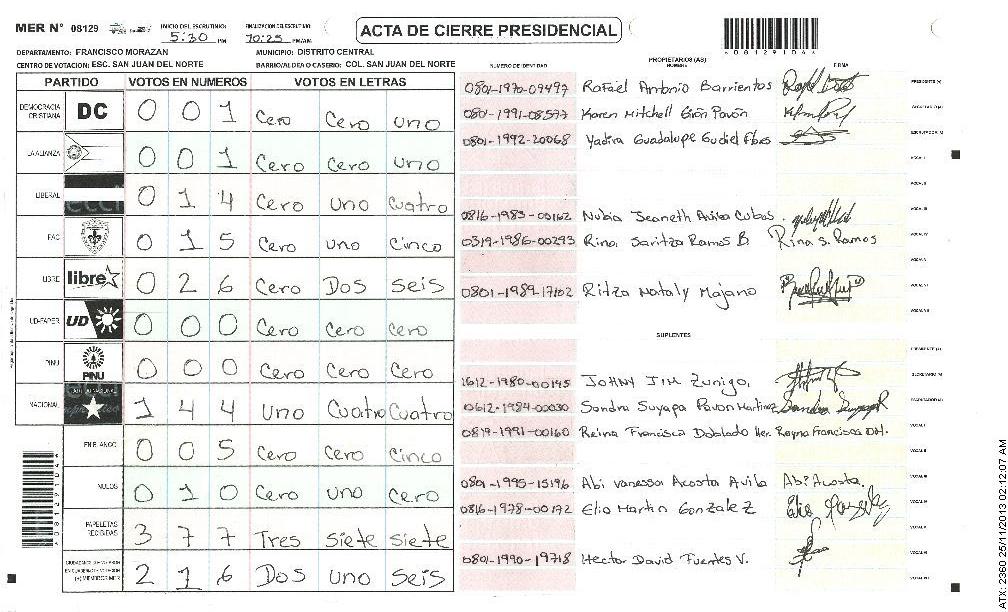 MER N° 08129 INICIO DEL ESCRUTINIO: 5:30 PM FINALIZACION DEL ESCRUTINIO: 10:25 PM/AM
ACTA DE CIERRE PRESIDENCIAL
DEPARTAMENTO: FRANCISCO MORAZAN MUNICIPIO: DISTRITO CENTRAL
CENTRO DE VOTACION: ESC. SAN JUAN DEL NORTE BARRIO/ALDEA O CASERIO: COL. SAN JUAN DEL NORTE
PARTIDO VOTOS EN NUMEROS VOTOS EN LETRAS
DEMOCRACIA CRISTIANA DC 0 0 1 Cero Cero uno
LA ALIANZA 0 0 1 Cero Cero uno
LIBERAL 0 1 4 Cero uno cuatro
PAC 0 1 5 Cero uno cinco
LIBRE libre 0 2 6 Cero Dos seis
UD-FAPER UD 0 0 0 Cero Cero cero
PINU PINU 0 0 0 Cero Cero Cero
NACIONAL 1 4 4 Uno Cuatro Cuatro
EN BLANCO 0 0 5 Cero Cero Cinco
NULOS 0 1 0 Cero uno Cero
PAPELETAS RECIBIDAS 3 7 7 Tres siete siete
2 1 6 Dos uno seis
NUMERO DE IDENTIDAD PROPIETARIOS (AS) NOMBRE FIRMA
0801-1970-09497 Rafael Antonio Barrientos PRESIDENTE (A)
0801-1991-08577 Karen Mitchell Girón Pavón SECRETARIO (A)
0801-1992-20068 Yadira Guadalupe Gudiel Flres ESCRUTADOR (A)
VOCAL I
VOCAL II
0816-1983-00162 Nubia Jeaneth Avila Cubas VOCAL III
0319-1986-00293 Rina Saritza Ramos B Rina S. Ramos VOCAL IV
VOCAL V
0801-1989-17102 Ritza Nataly Majano VOCAL VI
SUPLENTES
PRESIDENTE (A)
1612-1980-00145 JOHNY JIM Zuniga SECRETARIO (A)
0612-1984-00030 Sandra Suyapa Pavon Martinez ESCRUTADOR (A)
0819-1991-00160 Reina Francisca Doblado Her. Reyna Francisca D.H. VOCAL I
VOCAL II
0801-1995-15196 Abi vanessa Acosta Avila Abi Acosta. VOCAL III
0816-1978-00172 Elio Martin Gonzalez VOCAL IV
VOCAL V
0801-1990-19718 Hector David Fuentes V. VOCAL VI
ATX: 2360 25/11/2013 02:12:07 AM